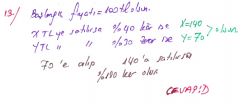 13/ Başlangıç fiyatı = 100TL olsun.
X TL'ye satılırsa %40 kâr ise X=140
Y TL " " %30 zarar ise Y=70 olsun.
70'e alıp 140'a satılırsa
%100 kâr olur.
CEVAP: D